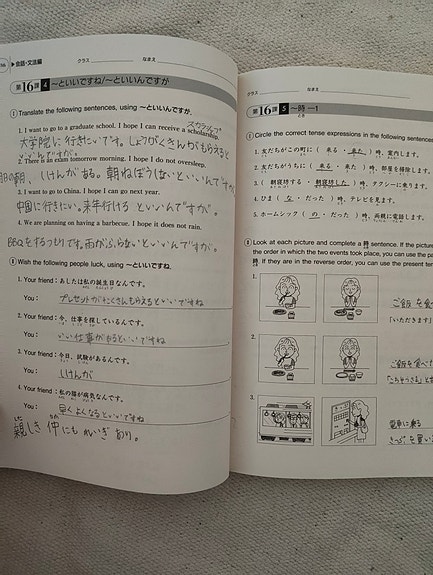 56 ▶会話・文法編
クラス なまえ
第16課 4 〜といいですね/〜といいんですが
Ⅰ Translate the following sentences, using 〜といいんですが.
1. I want to go to a graduate school. I hope I can receive a scholarship.
スカラシップ
大学院に行きたいです。しょうがくきんがもらえると
いいんですが。
2. There is an exam tomorrow morning. I hope I do not oversleep.
明日の朝、しけんがある。朝ねぼうしないといいんですが
3. I want to go to China. I hope I can go next year.
中国に行きたい。来年行けるといいんですが。
4. We are planning on having a barbecue. I hope it does not rain.
BBQをするつもりです。雨がふらないといいんですが。
Ⅱ Wish the following people luck, using 〜といいですね.
1. Your friend : あしたは私の誕生日なんです。
You : プレゼントがたくさんもらえるといいですね
2. Your friend : 今、仕事を探しているんです。
You : いい仕事があるといいですね
3. Your friend : 今日、試験があるんです。
You : しけんが
4. Your friend : 私の猫が病気なんです。
You : 早くよくなるといいですね
親しき仲にもれいぎあり。
クラス なまえ
第16課 5 〜時—1
Ⅰ Circle the correct tense expressions in the following sentences
1. 友だちがこの町に ( 来る・来た ) 時、案内します。
2. 友だちがうちに ( 来る・来た ) 時、部屋を掃除します。
3. ( 朝寝坊する・朝寝坊した ) 時、タクシーに乗ります。
4. ひま ( な・だった ) 時、テレビを見ます。
5. ホームシック ( の・だった ) 時、両親に電話します。
Ⅱ Look at each picture and complete a 時 sentence. If the picture
the order in which the two events took place, you can use the pa
時. If they are in the reverse order, you can use the present ter
1.
ご飯を食べ
「いただきます」
2.
ご飯を食べた
「ごちそうさま」と
3.
電車に乗る
きっぷを買い